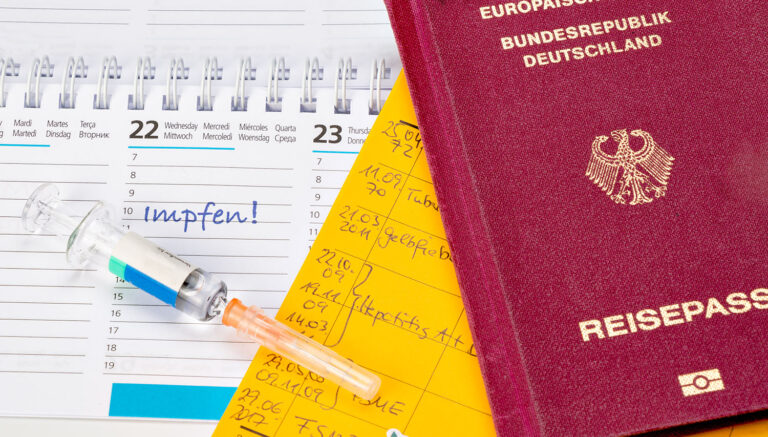 EUROPÄISC
BUNDESREPUBLIK
DEUTSCHLAND
REISEPASS
Mardi Martes Terça
Martedì Dinsdag Вторник
22 Wednesday Mercredi Miércoles Quarta
Mittwoch Mercoledì Woensdag Среда
23 Thursday
Donne
7
8
9
10 Impfen!
11
12
14
15
16
17
18
19
7
8
9
25.04
72
11.09.
70
21.03
2011 gelbfiebe
22.10.
09
19.11
09
14.03
Hepatitis A +
29.05.
09.11.09 FSME
29.06.
2017
FSM